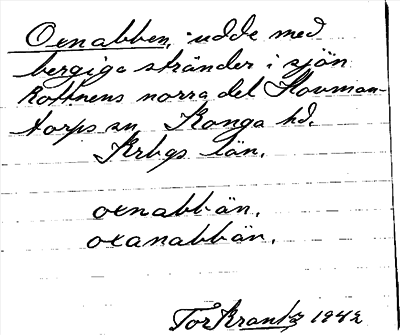 Oxnabben, udde med
bergiga stränder i sjön
Rottnens norra del Hovman-
torps sn, Konga hd.
Krbgs län.
oxnabbän.
oxanabbän.
Tor Krantz 1942